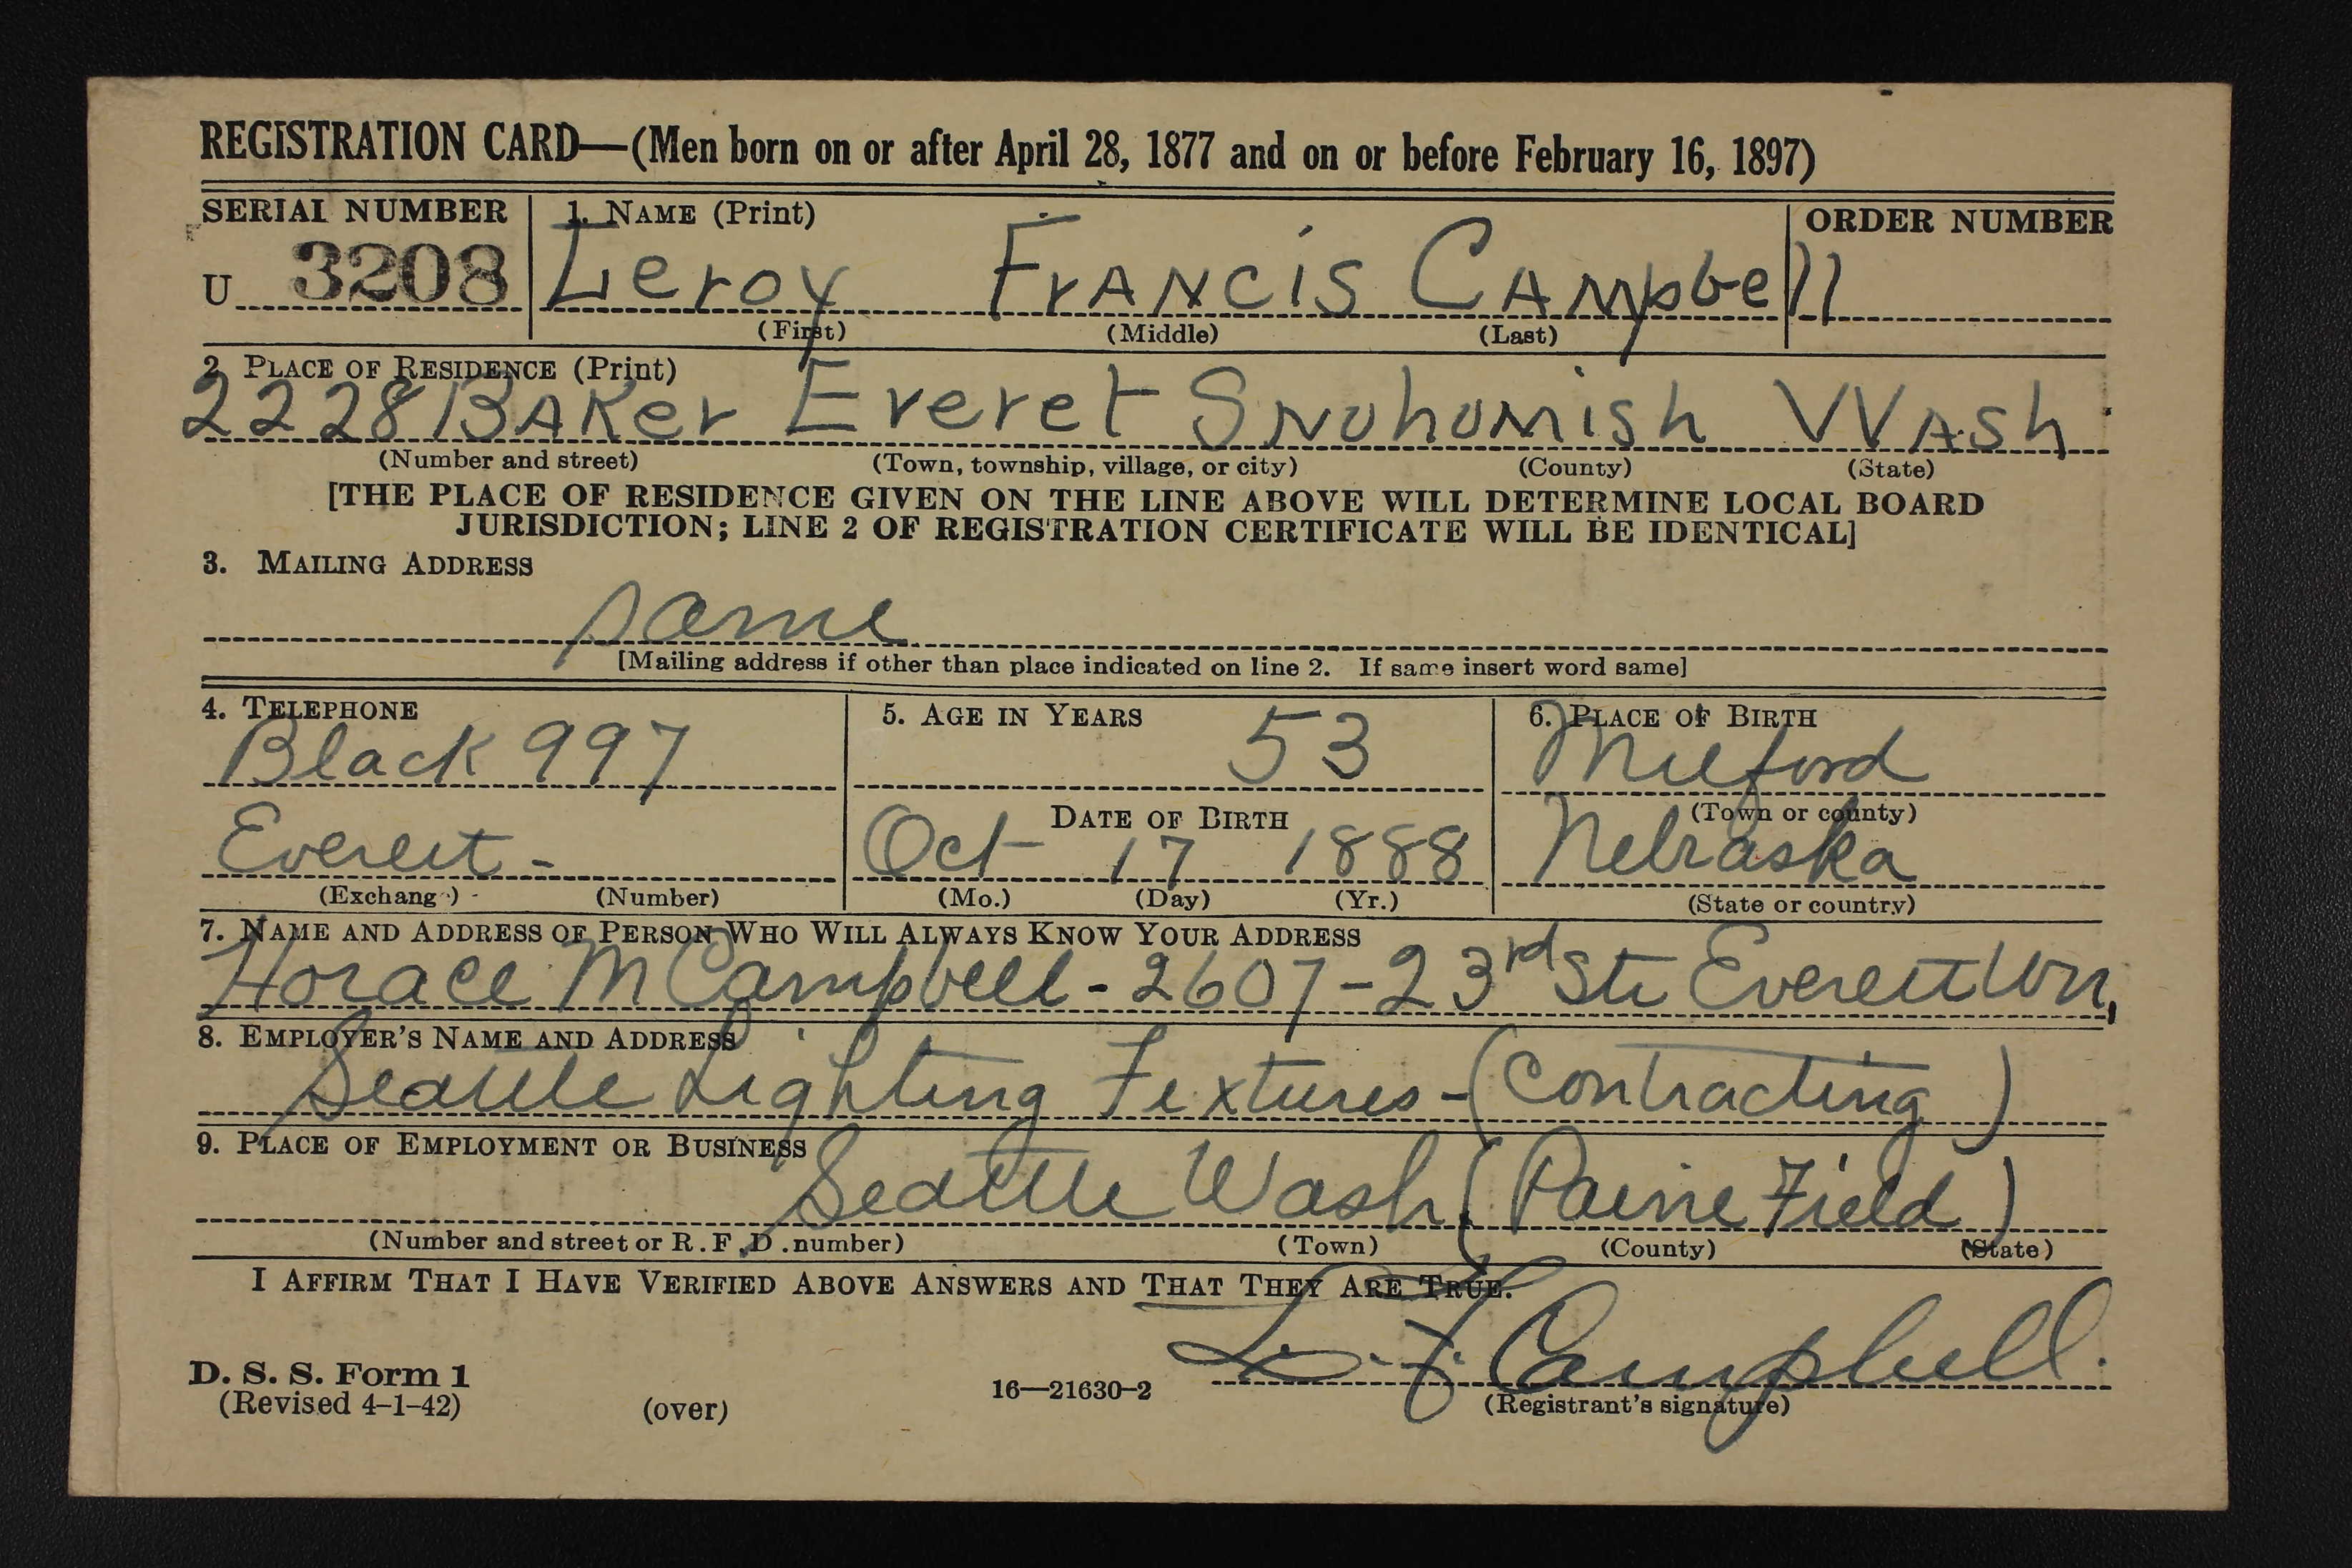 REGISTRATION CARD—(Men born on or after April 28, 1877 and on or before February 16, 1897)
SERIAL NUMBER 1. NAME (Print) ORDER NUMBER
U 3208 Leroy Francis Campbell
(First) (Middle) (Last)
2 PLACE OF RESIDENCE (Print)
2228 Baker Everet Snohomish Wash
(Number and street) (Town, township, village, or city) (County) (State)
[THE PLACE OF RESIDENCE GIVEN ON THE LINE ABOVE WILL DETERMINE LOCAL BOARD
JURISDICTION; LINE 2 OF REGISTRATION CERTIFICATE WILL BE IDENTICAL]
3. MAILING ADDRESS
same
[Mailing address if other than place indicated on line 2. If same insert word same]
4. TELEPHONE 5. AGE IN YEARS 6. PLACE OF BIRTH
Black 997 53 Milford
DATE OF BIRTH (Town or county)
Everett - Oct 17 1888 Nebraska
(Exchange) (Number) (Mo.) (Day) (Yr.) (State or country)
7. NAME AND ADDRESS OF PERSON WHO WILL ALWAYS KNOW YOUR ADDRESS
Horace M Campbell - 2607 - 23rd St. Everett Wn,
8. EMPLOYER'S NAME AND ADDRESS
Seattle Lighting Fixtures - (Contracting)
9. PLACE OF EMPLOYMENT OR BUSINESS
Seattle Wash. (Paine Field)
(Number and street or R.F.D. number) (Town) (County) (State)
I AFFIRM THAT I HAVE VERIFIED ABOVE ANSWERS AND THAT THEY ARE TRUE.
L. F. Campbell.
D. S. S. Form 1
(Revised 4-1-42) (over) 16—21630-2 (Registrant's signature)